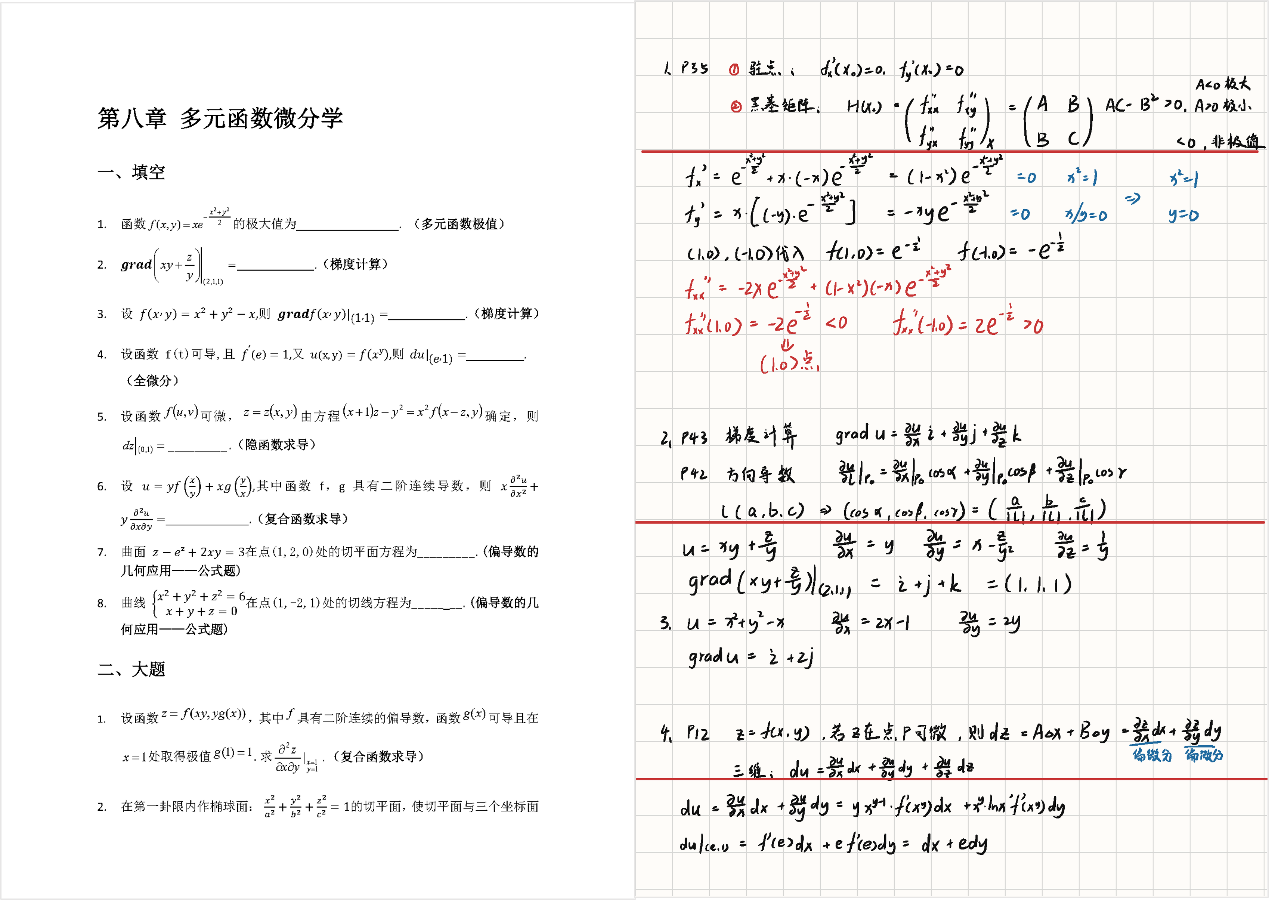 第八章 多元函数微分学
一、填空
1. 函数 f(x,y)=xe^{-\frac{x^2+y^2}{2}} 的极大值为______________. （多元函数极值）
2. grad(xy+\frac{z}{y})|_{(2,1,1)} =____________.（梯度计算）
3. 设 f(x·y) = x² + y² − x,则 gradf(x·y)|_{(1·1)} =____________.（梯度计算）
4. 设函数 f(t)可导,且 f'(e) = 1,又 u(x,y) = f(x^y),则 du|_{(e·1)} =_________.
（全微分）
5. 设函数 f(u,v) 可微， z=z(x,y) 由方程 (x+1)z−y²=x²f(x−z,y) 确定，则
dz|_{(0,1)} = _________.（隐函数求导）
6. 设 u = yf(\frac{x}{y}) + xg(\frac{y}{x}),其中函数 f，g 具有二阶连续导数，则 x\frac{∂²u}{∂x²} +
y\frac{∂²u}{∂x∂y} =____________.（复合函数求导）
7. 曲面 z − e^z + 2xy = 3在点(1,2,0)处的切平面方程为_________.(偏导数的
几何应用——公式题)
8. 曲线 \begin{cases} x² + y² + z² = 6 \\ x + y + z = 0 \end{cases} 在点(1,-2,1)处的切线方程为________.(偏导数的几
何应用——公式题)
二、大题
1. 设函数 z = f(xy, yg(x))，其中 f 具有二阶连续的偏导数，函数 g(x) 可导且在
x=1处取得极值 g(1)=1. 求 \frac{∂²z}{∂x∂y}|_{x=1, y=1}.（复合函数求导）
2. 在第一卦限内作椭球面：\frac{x²}{a²} + \frac{y²}{b²} + \frac{z²}{c²} = 1的切平面，使切平面与三个坐标面
1. P35 ① 驻点： f_x'(x₀)=0, f_y'(x₀)=0
A<0 极大
② 黑塞矩阵： H(x₀) = \begin{pmatrix} f_{xx}'' & f_{xy}'' \\ f_{yx}'' & f_{yy}'' \end{pmatrix}_x = \begin{pmatrix} A & B \\ B & C \end{pmatrix} AC−B²>0, A>0 极小
<0, 非极值
f_x' = e^{-\frac{x²+y²}{2}} + x·(−x)e^{-\frac{x²+y²}{2}} = (1−x²)e^{-\frac{x²+y²}{2}} =0 x²=1 x²=1
f_y' = x·[(−y)·e^{-\frac{x²+y²}{2}}] = −xye^{-\frac{x²+y²}{2}} =0 x/y=0 ⇒ y=0
(1,0), (−1,0)代入 f(1,0) = e^{-\frac{1}{2}} f(−1,0) = −e^{-\frac{1}{2}}
f_{xx}'' = −2xe^{-\frac{x²+y²}{2}} + (1−x²)(−x)e^{-\frac{x²+y²}{2}}
f_{xx}''(1,0) = −2e^{-\frac{1}{2}} <0 f_{xx}''(−1,0) = 2e^{-\frac{1}{2}} >0
⇓
(1,0)点
2. P43 梯度计算 grad u = \frac{∂u}{∂x}i + \frac{∂u}{∂y}j + \frac{∂u}{∂z}k
P42 方向导数 \frac{∂u}{∂l}|_{P₀} = \frac{∂u}{∂x}|_{P₀}cosα + \frac{∂u}{∂y}|_{P₀}cosβ + \frac{∂u}{∂z}|_{P₀}cosγ
l(a,b,c) ⇒ (cosα, cosβ, cosγ) = (\frac{a}{|l|}, \frac{b}{|l|}, \frac{c}{|l|})
u = xy + \frac{z}{y} \frac{∂u}{∂x} = y \frac{∂u}{∂y} = x − \frac{z}{y²} \frac{∂u}{∂z} = \frac{1}{y}
grad(xy+\frac{z}{y})|_{(2,1,1)} = i + j + k = (1,1,1)
3. u = x²+y²−x \frac{∂u}{∂x} = 2x−1 \frac{∂u}{∂y} = 2y
grad u = i + 2j
4. P12 z = f(x,y), 若z在点P可微，则dz = A△x + B△y = \frac{∂z}{∂x}dx + \frac{∂z}{∂y}dy
偏微分 偏微分
三维： du = \frac{∂u}{∂x}dx + \frac{∂u}{∂y}dy + \frac{∂u}{∂z}dz
du = \frac{∂u}{∂x}dx + \frac{∂u}{∂y}dy = yx^{y−1}·f'(x^y)dx + x^y·lnx f'(x^y)dy
du|_{(e,1)} = f'(e)dx + ef'(e)dy = dx + edy